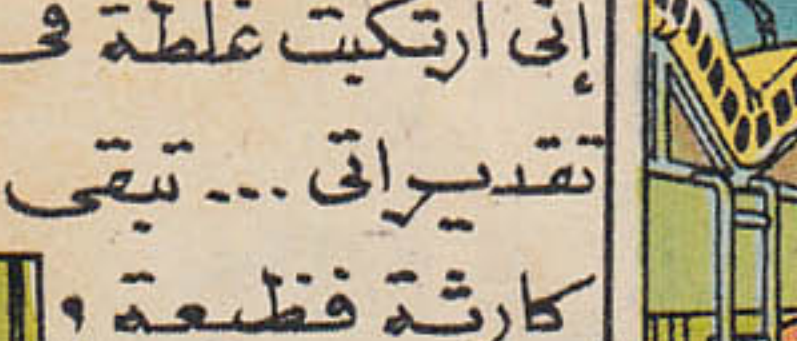 إنى ارتكبت غلطة فى
تقديراتى ... تبقى
كارثة فظيعة